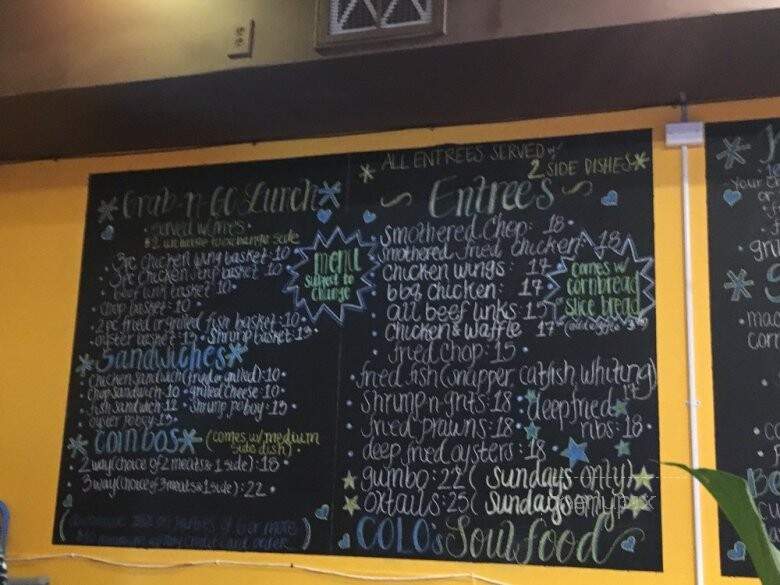 Grab-n-Go Lunch
Served w/fries
$2 upcharge to exchange side
3pc chicken wing basket: 10
3pc chicken strip basket: 10
beef link basket: 10
chop basket: 10
2pc fried or grilled fish basket: 10
oyster basket: 15 shrimp basket: 15
Sandwiches
Chicken sandwich (fried or grilled): 10
Chop sandwich: 10 grilled cheese: 10
fish sandwich: 12 shrimp po boy: 15
oyster po boy: 15
Combos (comes w/medium
side dish)
2 way (choice of 2 meats & 1 side): 18
3 way (choice of 3 meats & 1 side): 22
on parties of 6 or more
menu
subject to
change
ALL ENTREES SERVED w/
2 SIDE DISHES
Entrees
smothered chop: 18
smothered fried chicken: 18
chicken wings: 17
bbq chicken: 17
all beef links: 15
chicken & waffle: 17
fried chop: 15
fried fish (snapper, catfish, whiting) 17
shrimp n grits: 18
deep fried
ribs: 18
fried prawns: 18
deep fried oysters: 18
gumbo: 22 (sundays only)
oxtails: 25 (sundays only)
COLO's Soulfood
comes w/
cornbread
slice bread
your
or
gri
mac
corn